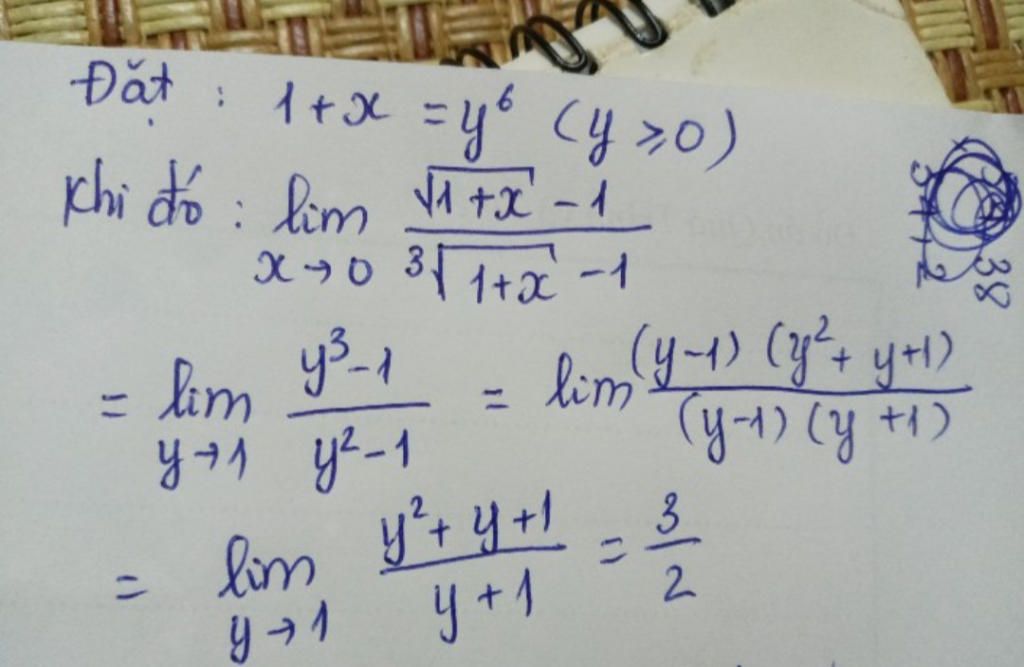 Đặt : 1+x = y⁶ (y ≥ 0)
Khi đó : lim x→0 (√(1+x) - 1) / (³√(1+x) - 1)
= lim y→1 (y³-1) / (y²-1) = lim (y-1)(y²+y+1) / (y-1)(y+1)
= lim y→1 (y²+y+1) / (y+1) = 3/2
38